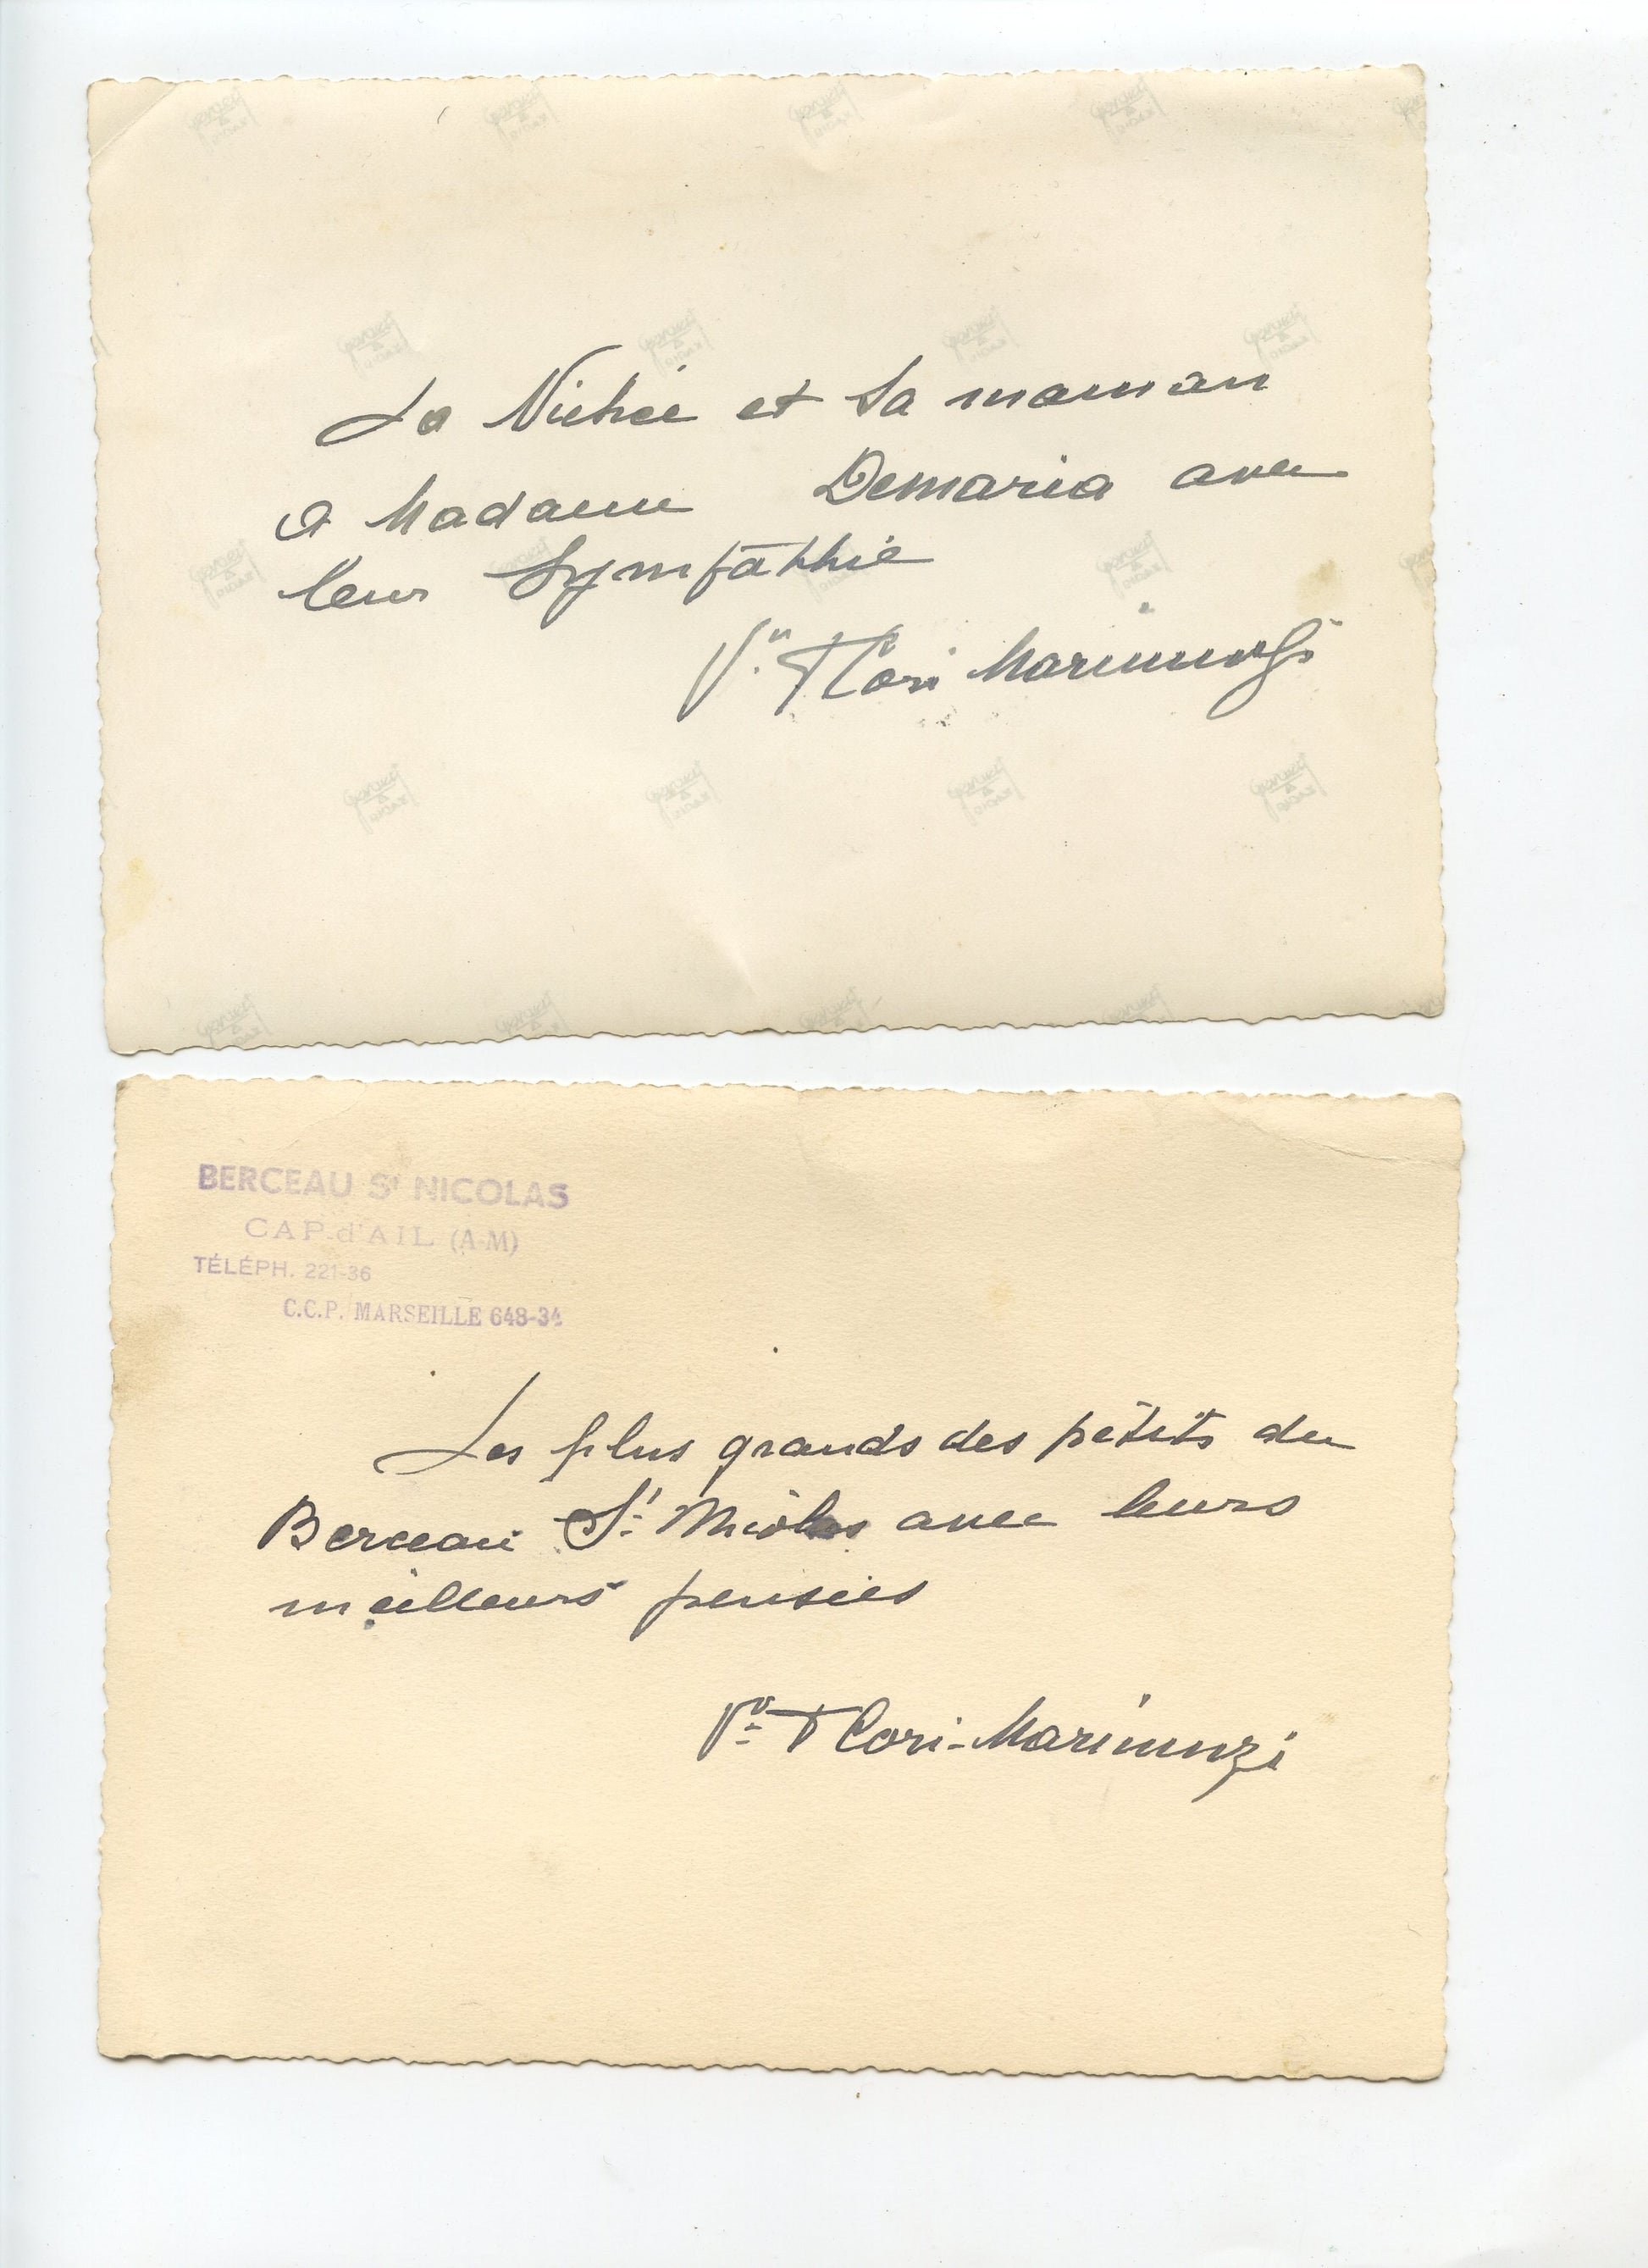 La Nichée et sa maman
à Madame Demaria avec
leur Sympathie
Vve Flori Marimonzi
BERCEAU St NICOLAS
CAP-d'AIL (A-M)
TÉLÉPH. 221-36
C.C.P. MARSEILLE 648-34
Les plus grands des pétits du
Berceau St Nicolas avec leurs
meilleurs pensées
Flori-Marimonzi